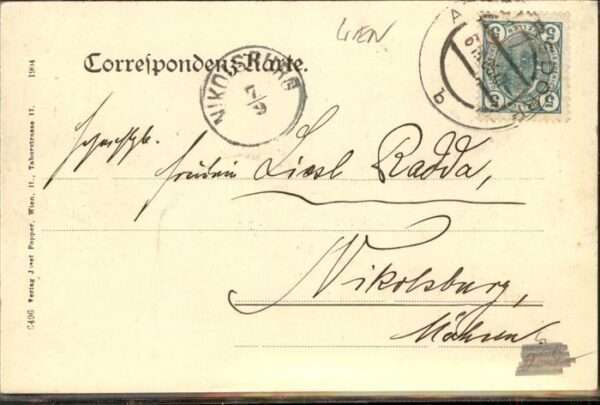 WIEN
Correspondenz-Karte.
NIKOLSBURG
5
5
5
5
Fräulein Liesl Radda,
Nikolsburg,
Mähren.
1904
C496 Verlag Josef Popper, Wien, II., Taborstrasse 17.